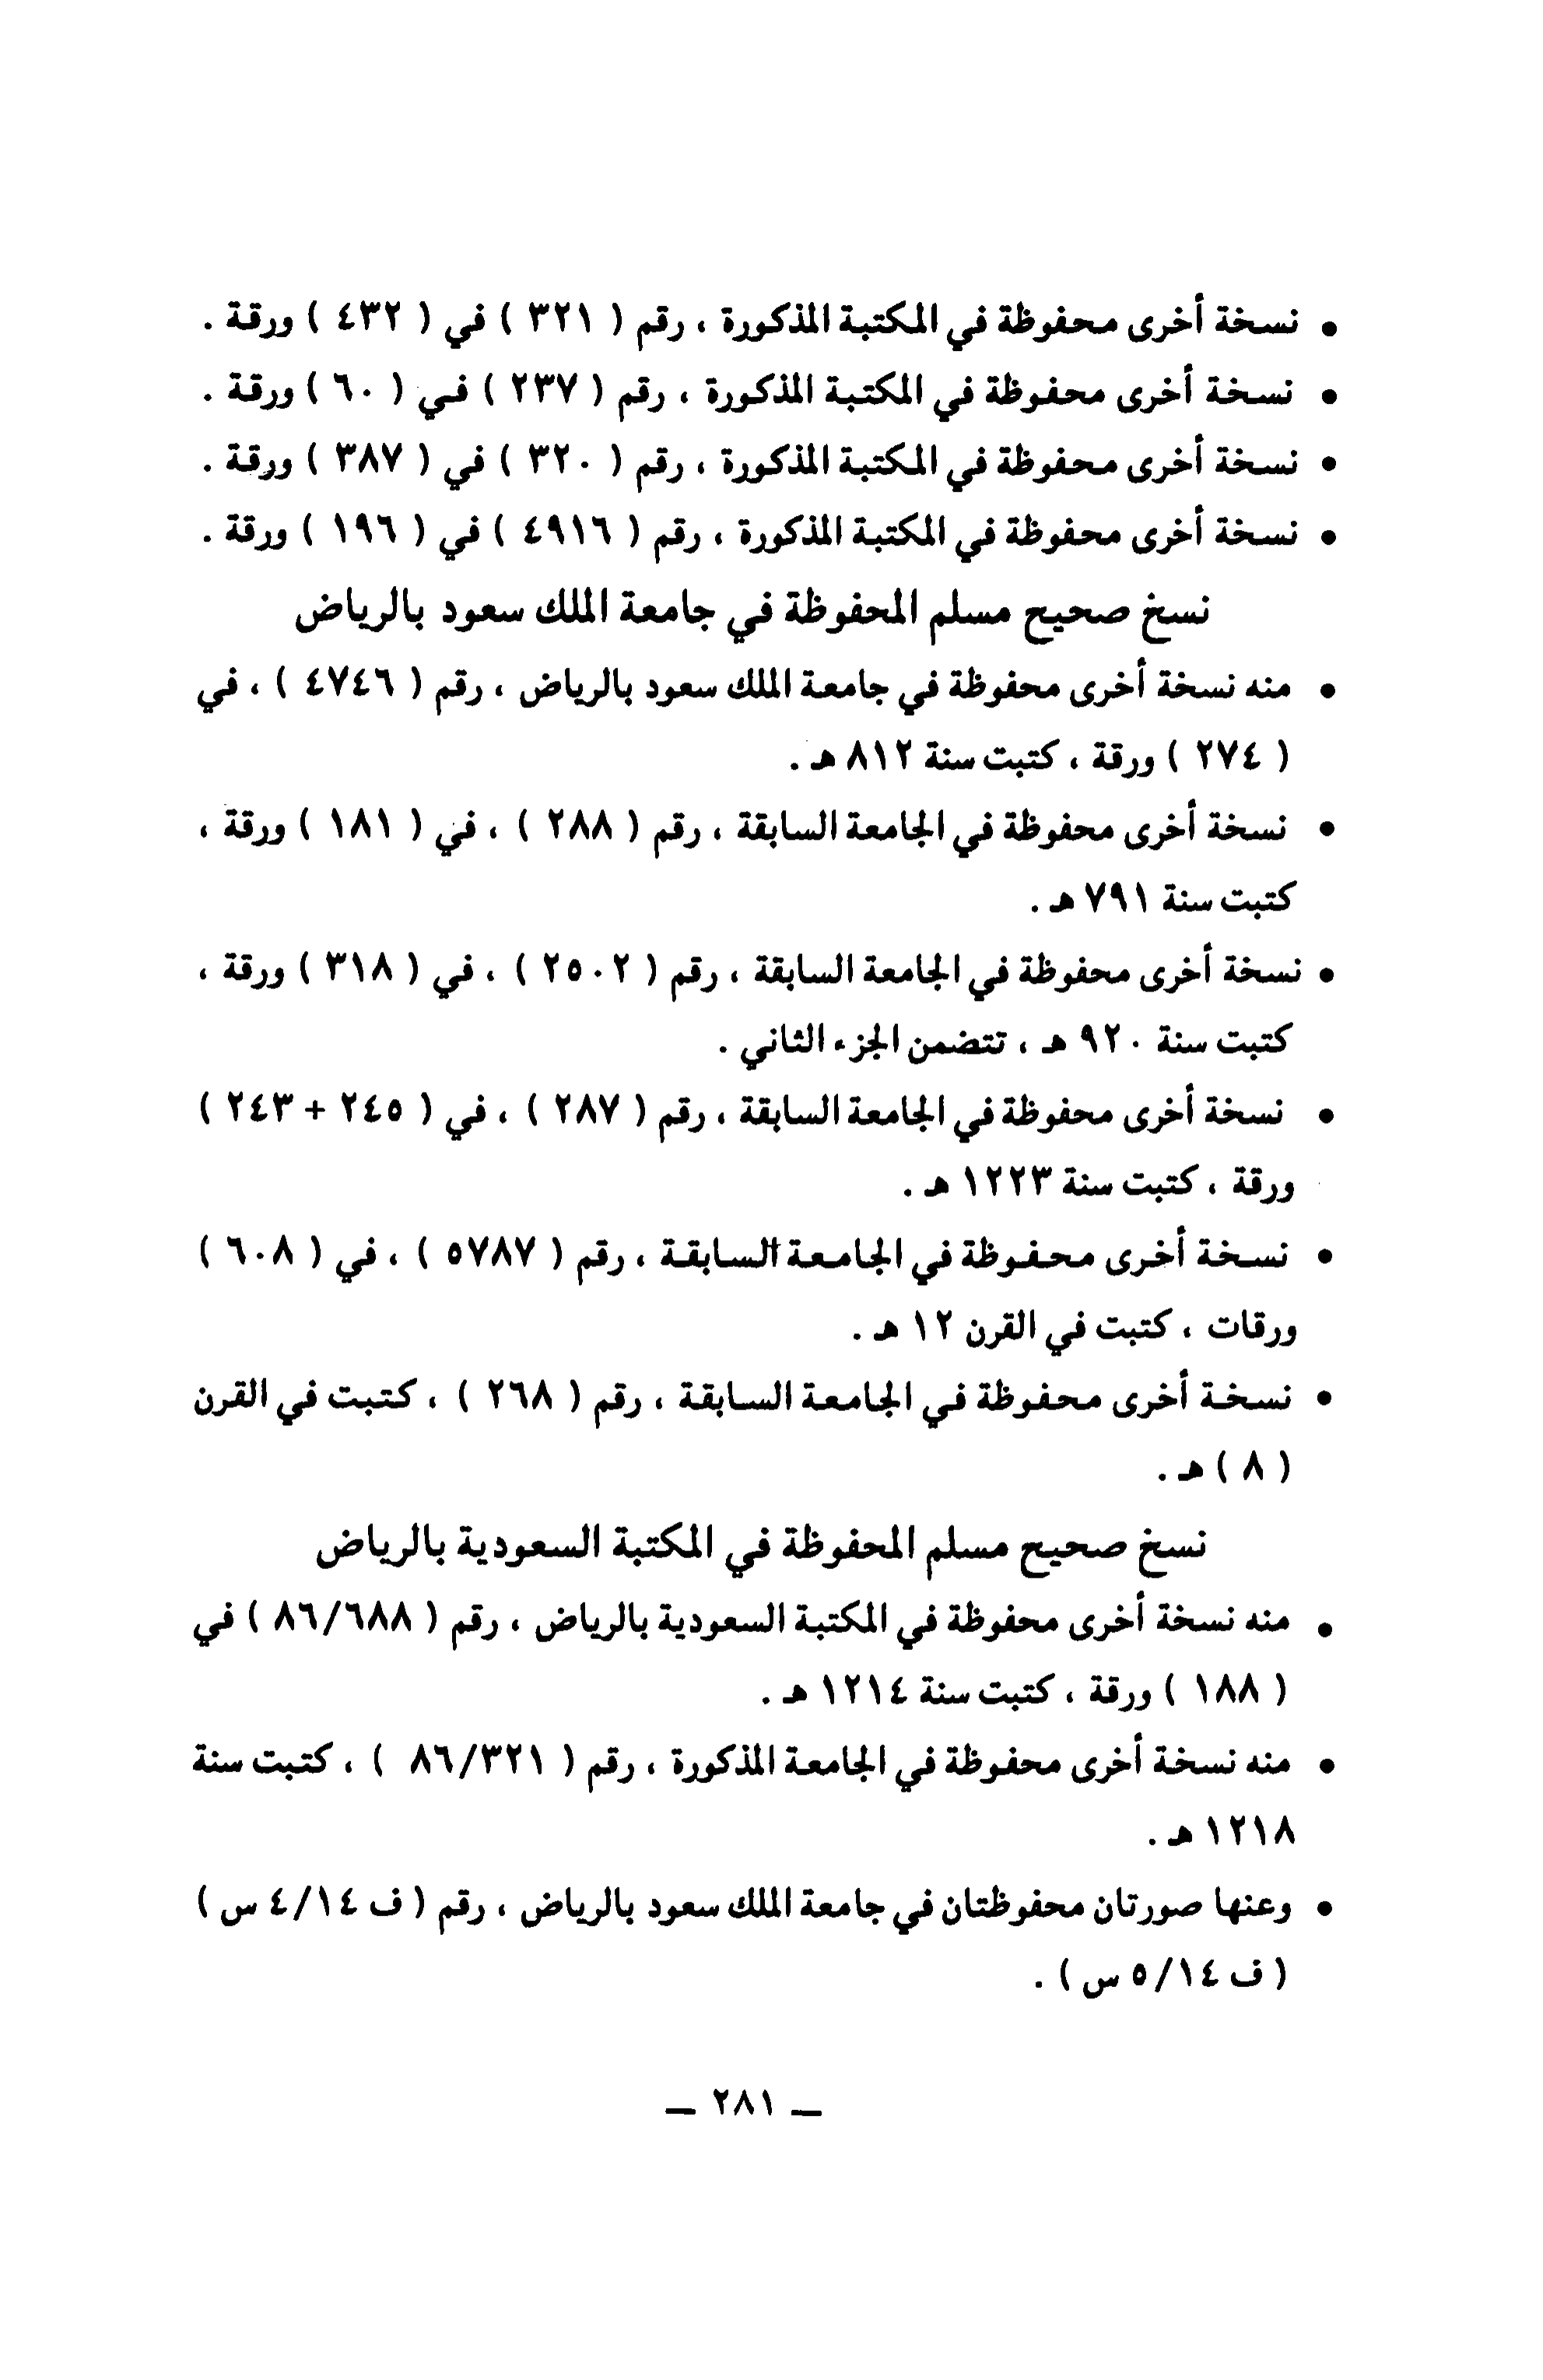 • نسخة أخرى محفوظة في المكتبة المذكورة ، رقم ( ٣٢١ ) في ( ٤٣٢ ) ورقة .
• نسخة أخرى محفوظة في المكتبة المذكورة ، رقم ( ٢٣٧ ) في ( ٦٠ ) ورقة .
• نسخة أخرى محفوظة في المكتبة المذكورة ، رقم ( ٣٢٠ ) في ( ٣٨٧ ) ورقة .
• نسخة أخرى محفوظة في المكتبة المذكورة ، رقم ( ٤٩١٦ ) في ( ١٩٦ ) ورقة .
نسخ صحيح مسلم المحفوظة في جامعة الملك سعود بالرياض
• منه نسخة أخرى محفوظة في جامعة الملك سعود بالرياض ، رقم ( ٤٧٤٦ ) ، في
( ٢٧٤ ) ورقة ، كتبت سنة ٨١٢ هـ .
• نسخة أخرى محفوظة في الجامعة السابقة ، رقم ( ٢٨٨ ) ، في ( ١٨١ ) ورقة ،
كتبت سنة ٧٩١ هـ .
• نسخة أخرى محفوظة في الجامعة السابقة ، رقم ( ٢٥٠٢ ) ، في ( ٣١٨ ) ورقة ،
كتبت سنة ٩٢٠ هـ ، تتضمن الجزء الثاني .
• نسخة أخرى محفوظة في الجامعة السابقة ، رقم ( ٢٨٧ ) ، في ( ٢٤٥ + ٢٤٣ )
ورقة ، كتبت سنة ١٢٢٣ هـ .
• نسخة أخرى محفوظة في الجامعة السابقة ، رقم ( ٥٧٨٧ ) ، في ( ٦٠٨ )
ورقات ، كتبت في القرن ١٢ هـ .
• نسخة أخرى محفوظة في الجامعة السابقة ، رقم ( ٢٦٨ ) ، كتبت في القرن
( ٨ ) هـ .
نسخ صحيح مسلم المحفوظة في المكتبة السعودية بالرياض
• منه نسخة أخرى محفوظة في المكتبة السعودية بالرياض ، رقم ( ٨٦/٦٨٨ ) في
( ١٨٨ ) ورقة ، كتبت سنة ١٢١٤ هـ .
• منه نسخة أخرى محفوظة في الجامعة المذكورة ، رقم ( ٨٦/٣٢١ ) ، كتبت سنة
١٢١٨ هـ .
• وعنها صورتان محفوظتان في جامعة الملك سعود بالرياض ، رقم ( ف ٤/١٤ س )
( ف ٥/١٤ س ) .
— ٢٨١ —